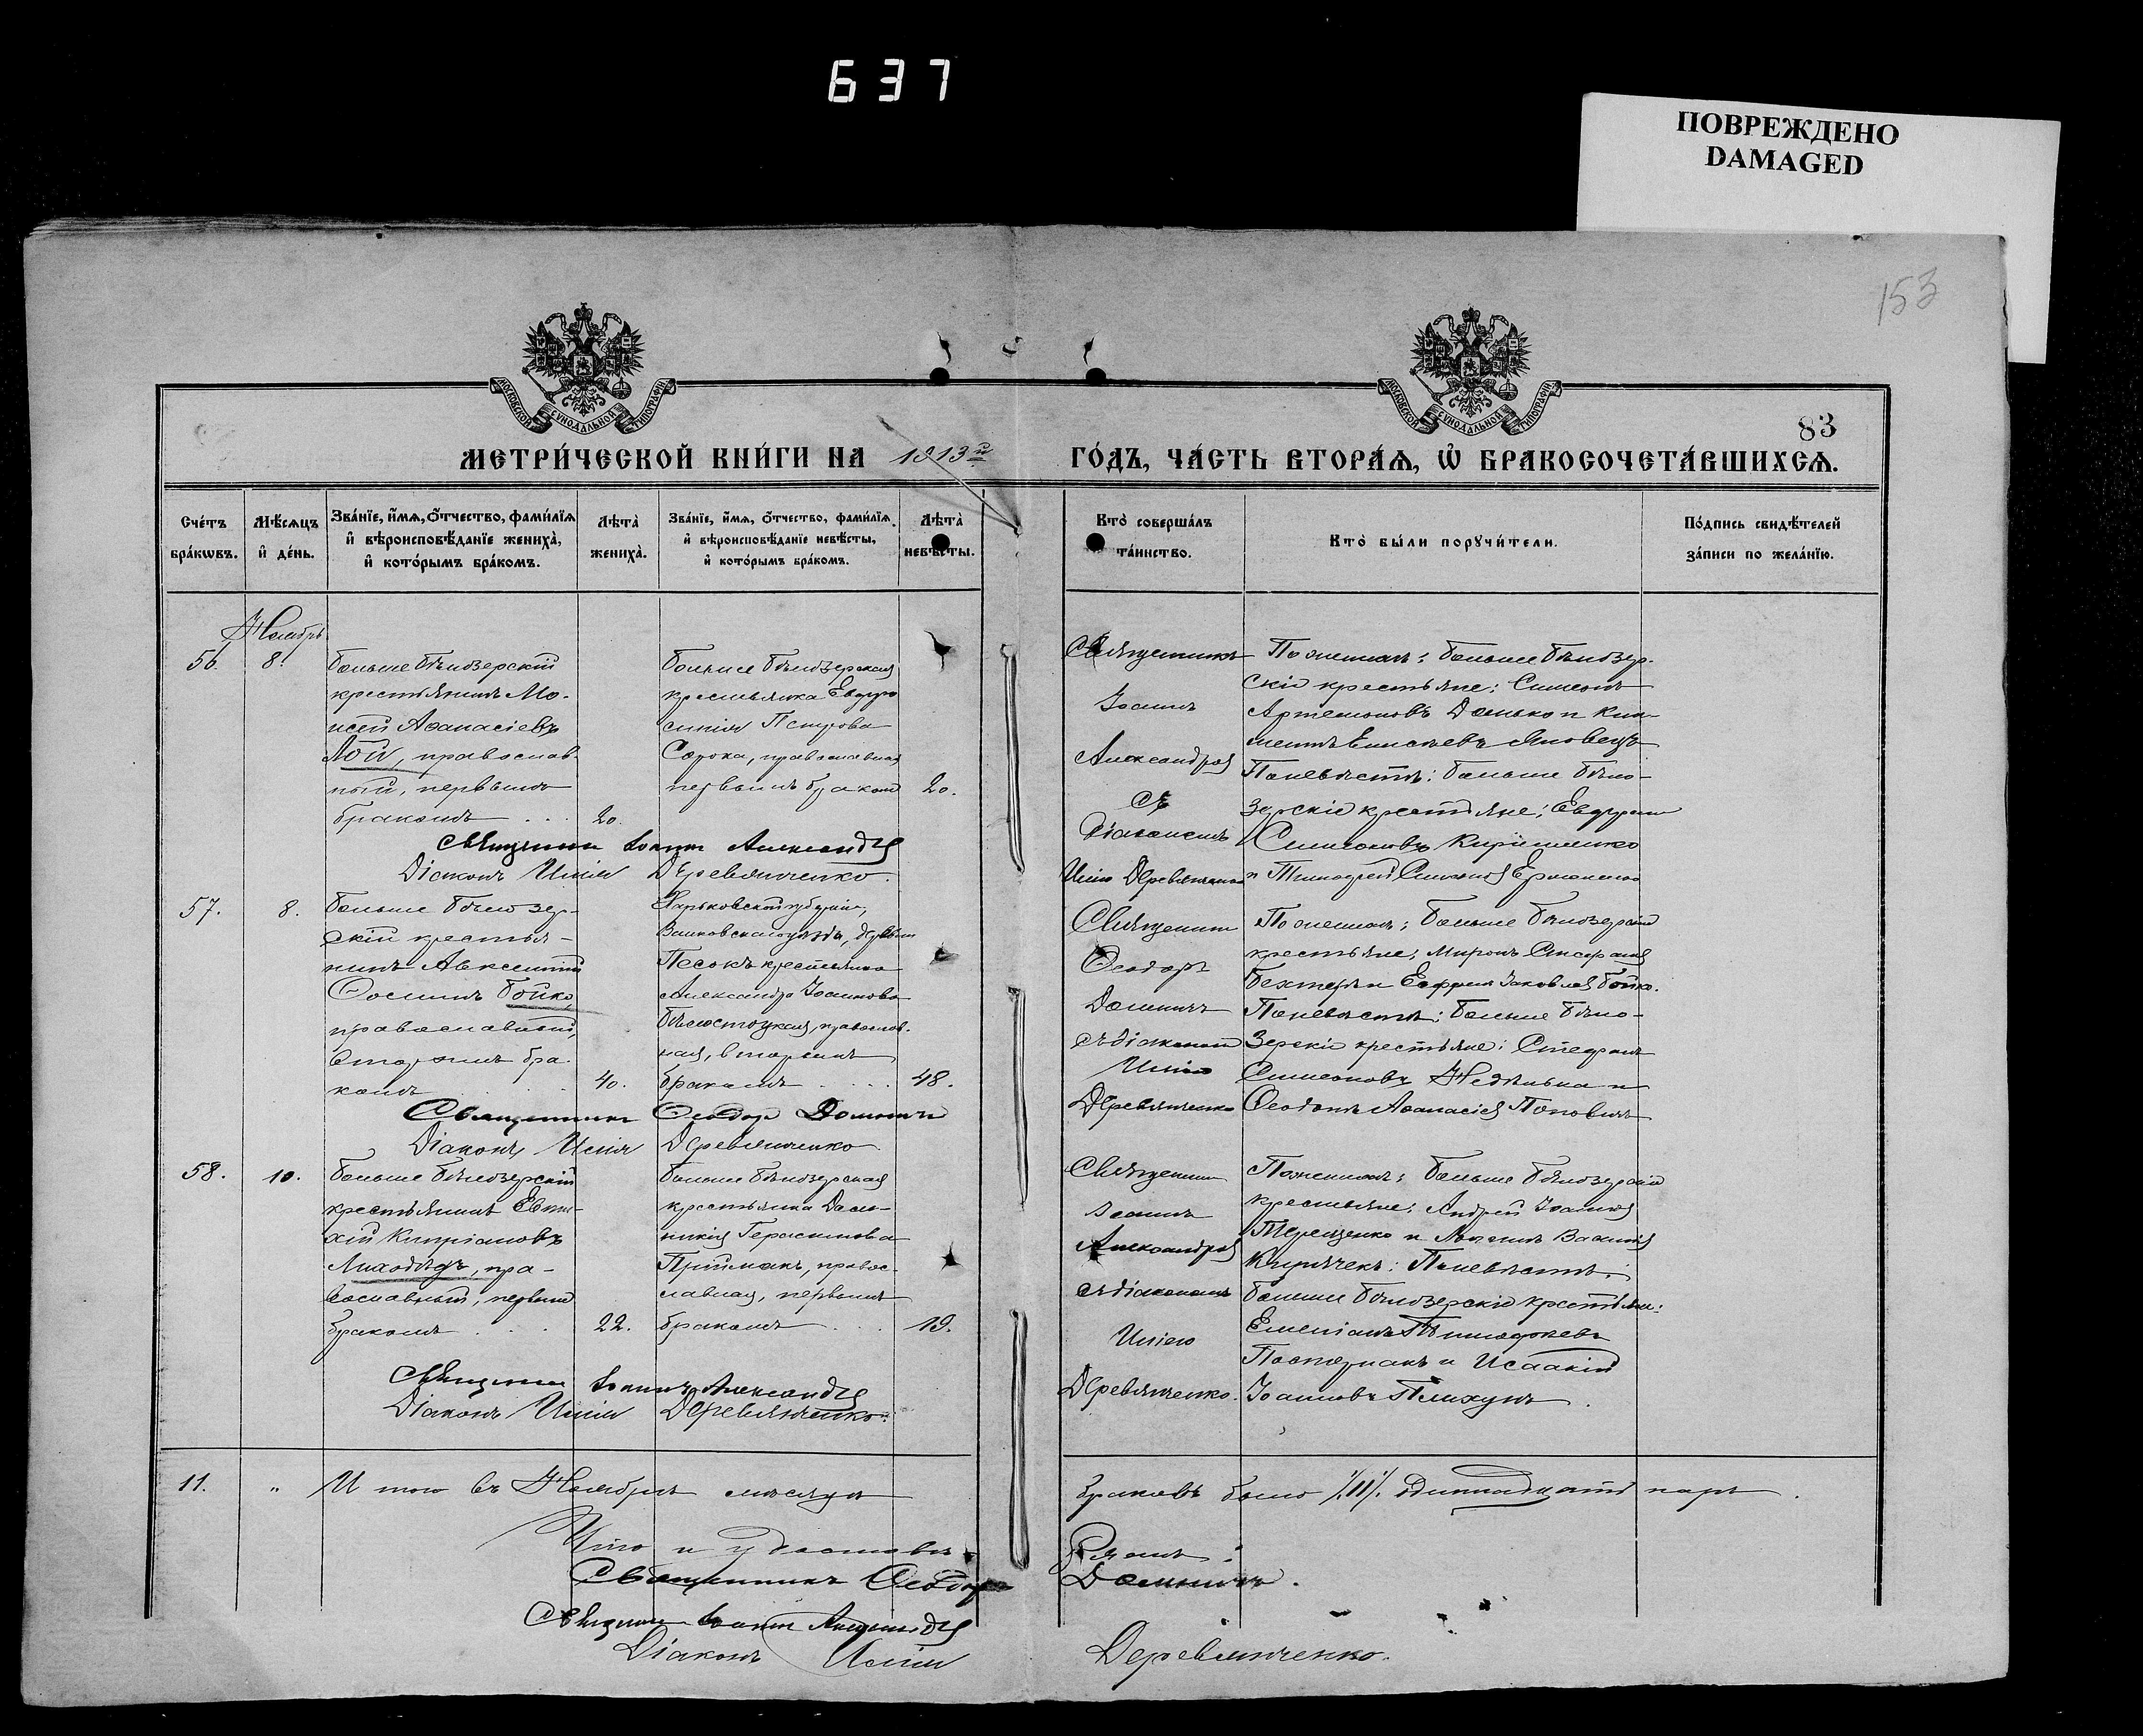 637
ПОВРЕЖДЕНО
DAMAGED
153
МОСКОВСКОЙ СѴНОДАЛЬНОЙ ТИПОГРАФІИ
МОСКОВСКОЙ СѴНОДАЛЬНОЙ ТИПОГРАФІИ
83
МЕТРИ́ЧЕСКОЙ КНИ́ГИ НА 1913й ГО́ДЪ, ЧА́СТЬ ВТОРА́Ѧ, Ѡ҆ БРАКОСОЧЕТА́ВШИХСѦ.
Сче́тъ
бра́кѡвъ.
Мѣ́сѧцъ
и҆ де́нь.
Зва́нїе, и҆́мѧ, ѻ҆́тчество, фами́лїѧ
и҆ вѣроисповѣ́данїе жениха̀,
и҆ кото́рымъ бра́комъ.
Лѣта̀
жениха̀.
Зва́нїе, и҆́мѧ, ѻ҆́тчество, фами́лїѧ
и҆ вѣроисповѣ́данїе невѣ́сты,
и҆ кото́рымъ бра́комъ.
Лѣта̀
невѣ́сты.
Кто̀ соверша́лъ
та́инство.
Кто̀ бы́ли порꙋчи́тели.
По́дпись свидѣ́телей
за́писи по жела́нїю.
Ноябрь
56.
8.
Больше Бѣлозерскій
крестьянинъ Мо-
исей Аѳанасіевъ
Лой, православ-
ный, первымъ
бракомъ . . .
20.
Больше Бѣлозерская
крестьянка Евфро
синія Петрова
Сорока, православная
первымъ бракомъ
20.
Священникъ
Іоаннъ
Александровъ
съ
діакономъ
Иліею Деревянченко
По женихѣ: Больше Бѣлозер-
скіе крестьяне: Симеонъ
Артемоновъ Донько и Кли-
ментъ Елисѣевъ Яковецъ
По невѣстѣ: Больше Бѣло-
зерскіе крестьяне: Евфрем
Симеоновъ Кириченко
и Тимофей Симеонов Ермоленко
Священникъ Іоаннъ Александровъ
Діаконъ Илія Деревянченко.
57.
8.
Больше Бѣлозер-
скій крестья-
нинъ Авксентій
Ѳоминъ Бойко,
православный,
вторымъ бра-
комъ . .
40.
Харьковской губерніи,
Валковскаго уѣзда, деревни
Песокъ крестьянка
Александра Іоаннова
Бѣлостоцкая, православ-
ная, вторымъ
бракомъ . . . .
48.
Священникъ
Ѳеодоръ
Доминичъ
съ діакономъ
Иліею
Деревянченко
По женихѣ: Больше Бѣлозерскіе
крестьяне: Миронъ
Бехтеръ и Ефремъ Іаковлев Бойко.
По невѣстѣ: Больше Бѣло-
зерскіе крестьяне: Стефанъ
Симеоновъ Недѣлька и
Ѳеодотъ Аѳанасіев Поповичъ
Священникъ Ѳеодоръ Доминичъ
Діаконъ Илія Деревянченко
58.
10.
Больше Бѣлозерскій
крестьянинъ Евти-
хій Кипріановъ
Лиходѣдъ, пра-
вославный, первымъ
бракомъ . . .
22.
Больше Бѣлозерская
крестьянка Доми-
никія Герасимова
Пріймакъ, правос-
лавная, первымъ
бракомъ . . .
19.
Священникъ
Іоаннъ
Александровъ
съ діакономъ
Иліею
Деревянченко.
По женихѣ: Больше Бѣлозерскіе
крестьяне: Андрей Іоаннов
Терещенко и Логгинъ Василіев
По невѣстѣ:
Больше Бѣлозерскіе крестьяне:
Емеліанъ Тимофеевъ
Постернакъ и Исаакій
Іоанновъ Плихунъ.
Священникъ Іоаннъ Александровъ
Діаконъ Илія Деревянченко.
11. „ Итого въ Ноябрѣ мѣсяцѣ браковъ было /11/. одиннадцать паръ.
Что и удостовѣряемъ:
Священникъ Ѳеодоръ Доминичъ.
Священникъ Іоаннъ Александровъ
Діаконъ Илія Деревянченко.